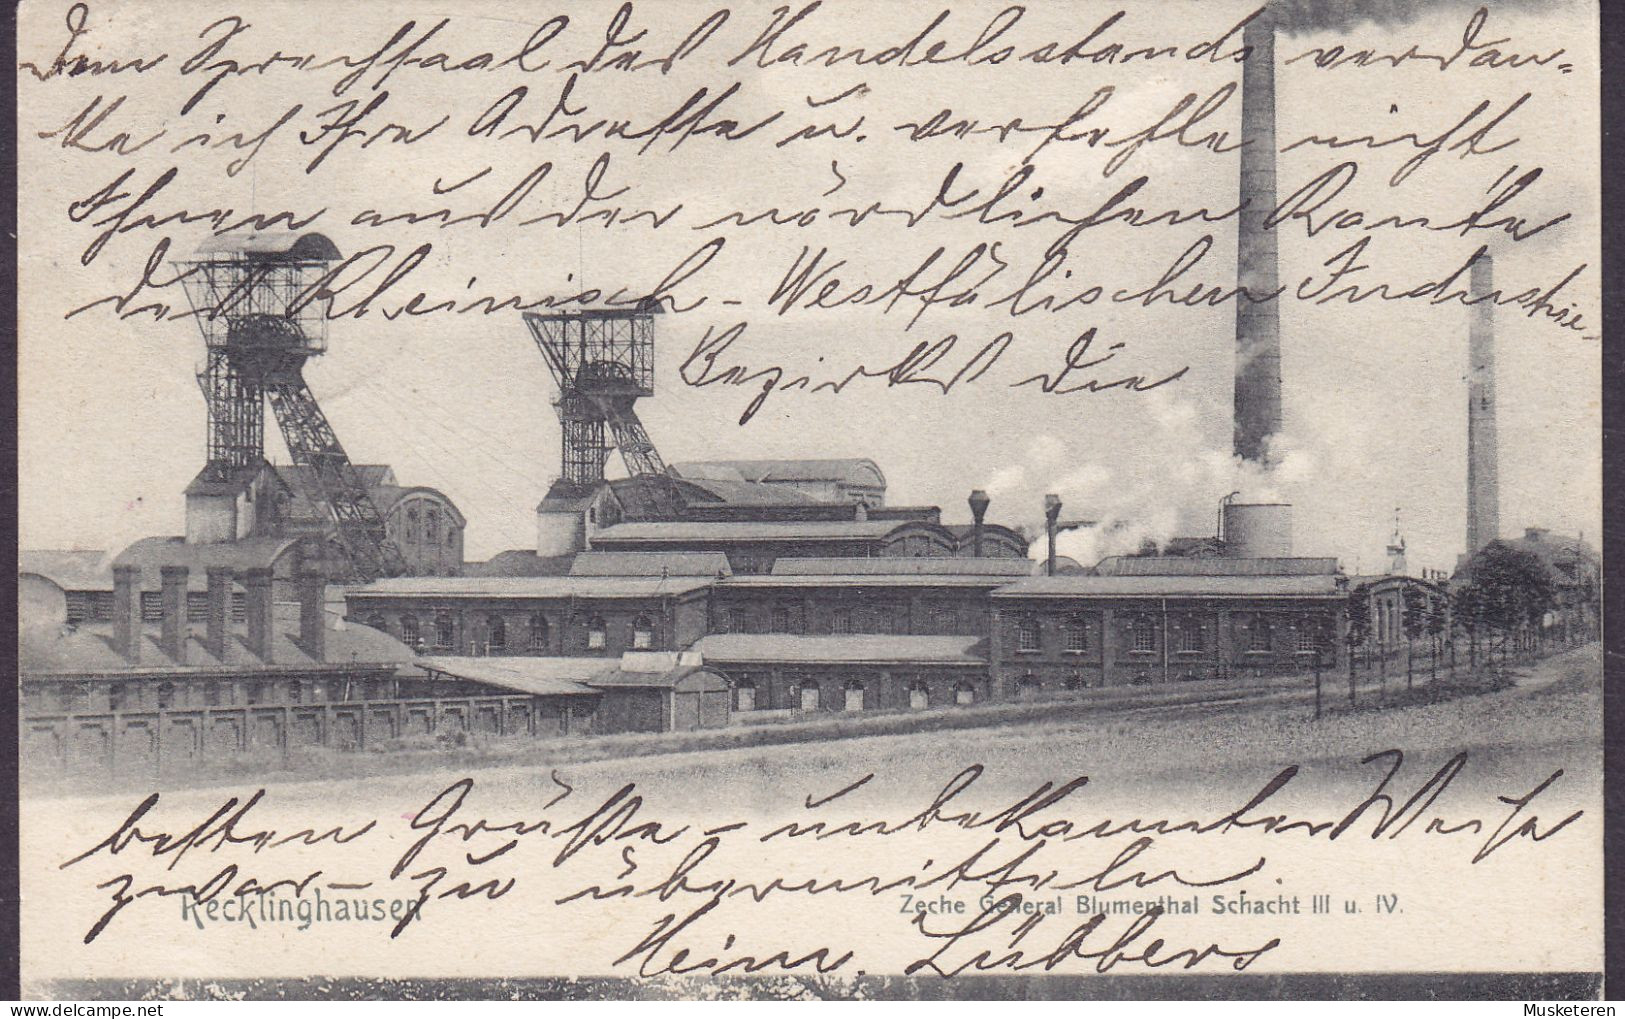 Dem Sprechsaal des Handelsstands verdan-
ke ich Ihre Adresse u. verfehle nicht
Ihnen aus der nördlichen Kante
des Rheinisch-Westfälischen Industrie-
Bezirks die
besten Grüße – unbekannter Weise
zwar – zu übermitteln.
Recklinghausen
Zeche General Blumenthal Schacht III u. IV.
Heinr. Lübbers
delcampe.net
Musketeren